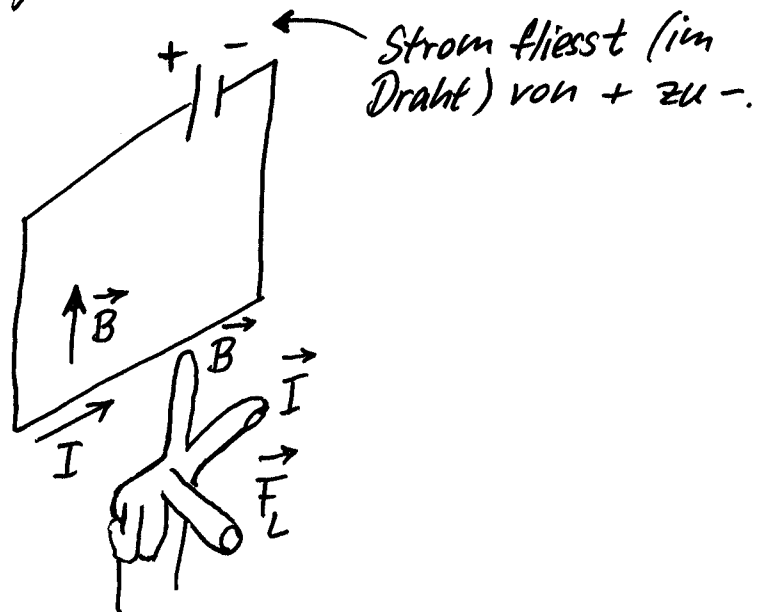 + -
Strom fliesst (im
Draht) von + zu -.
B
B
I
I
F_L